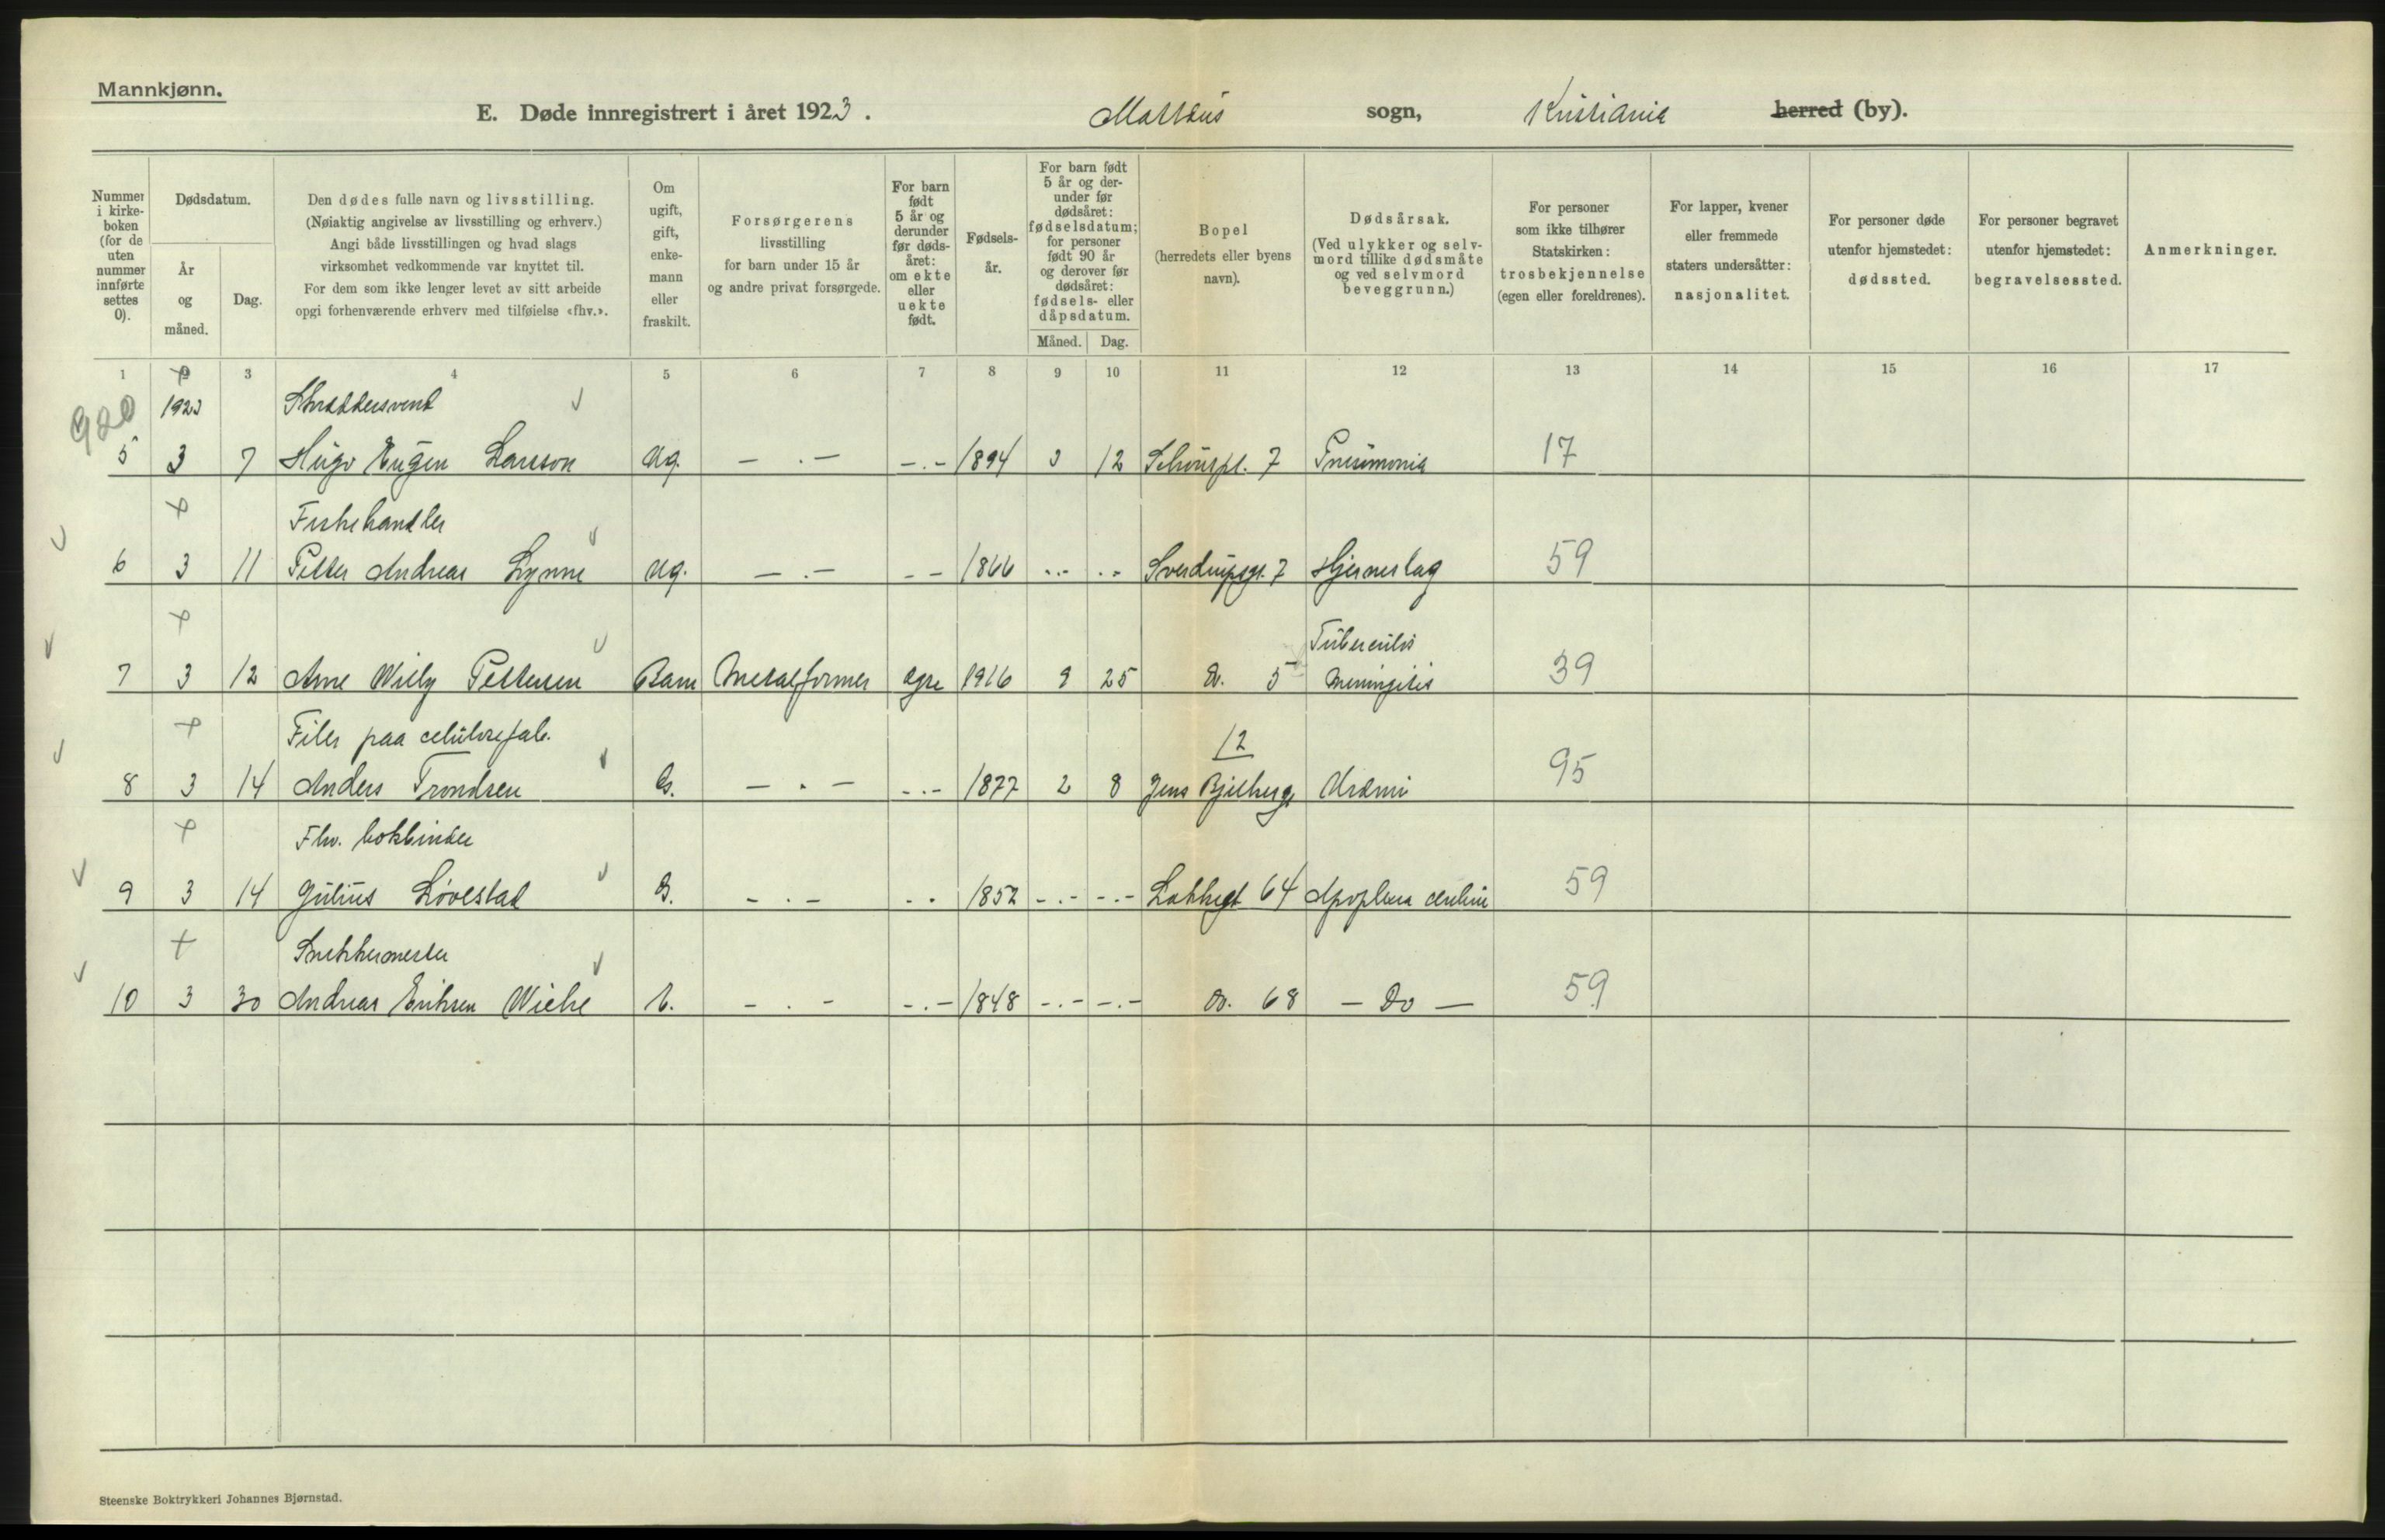 Mannkjønn.
E. Døde innregistrert i året 1923. Mattæus sogn, Kristiania herred (by).
Nummer i kirkeboken (for de uten nummer innførte settes 0).
Dødsdatum.
År og måned.
Dag.
Den dødes fulle navn og livsstilling.
(Nøiaktig angivelse av livsstilling og erhverv.)
Angi både livsstillingen og hvad slags
virksomhet vedkommende var knyttet til.
For dem som ikke lenger levet av sitt arbeide
opgi forhenværende erhverv med tilføielse «fhv.».
Om ugift, gift, enkemann eller fraskilt.
Forsørgerens
livsstilling
for barn under 15 år
og andre privat forsørgede.
For barn født 5 år og derunder før dødsåret: om ekte eller uekte født.
Fødselsår.
For barn født 5 år og derunder før dødsåret: fødselsdatum; for personer født 90 år og derover før dødsåret: fødsels- eller dåpsdatum.
Måned.
Dag.
Bopel
(herredets eller byens
navn).
Dødsårsak.
(Ved ulykker og selvmord tillike dødsmåte og ved selvmord beveggrunn.)
For personer
som ikke tilhører
Statskirken:
trosbekjennelse
(egen eller foreldrenes).
For lapper, kvener
eller fremmede
staters undersåtter:
nasjonalitet.
For personer døde
utenfor hjemstedet:
dødssted.
For personer begravet
utenfor hjemstedet:
begravelsessted.
Anmerkninger.
1 2 3 4 5 6 7 8 9 10 11 12 13 14 15 16 17
920 1923 Skræddersvend
5 3 7 Hugo Eugen Larsson Ug. — . — - . - 1894 3 12 Schouspl. 7 Pneumonia 17
Fiskehandler
6 3 11 Petter Andreas Lynne Ug. — . — - - 1866 - . - - . - Sverdrupsgt. 7 Hjerneslag 59
Tuberculøs
7 3 12 Arne Willy Pettersen Barn Metalformer Egte 1916 9 25 Do. 5 Meningitis 39
Filer paa celulosefab. 12
8 3 14 Anders Trondsen G. — . — - . - 1877 2 8 Jens Bjelkesgt Uræmi 95
Fhv. bokbinder
9 3 14 Julius Løvestad G. - . - - . 1852 - . - - . - Lakkegt 64 Apoplexia cerebri 59
Snekkermester
10 3 30 Andreas Eriksen Wiehe E. - . - - . - 1848 - . - - . - Do. 68 — Do — 59
Steenske Boktrykkeri Johannes Bjørnstad.